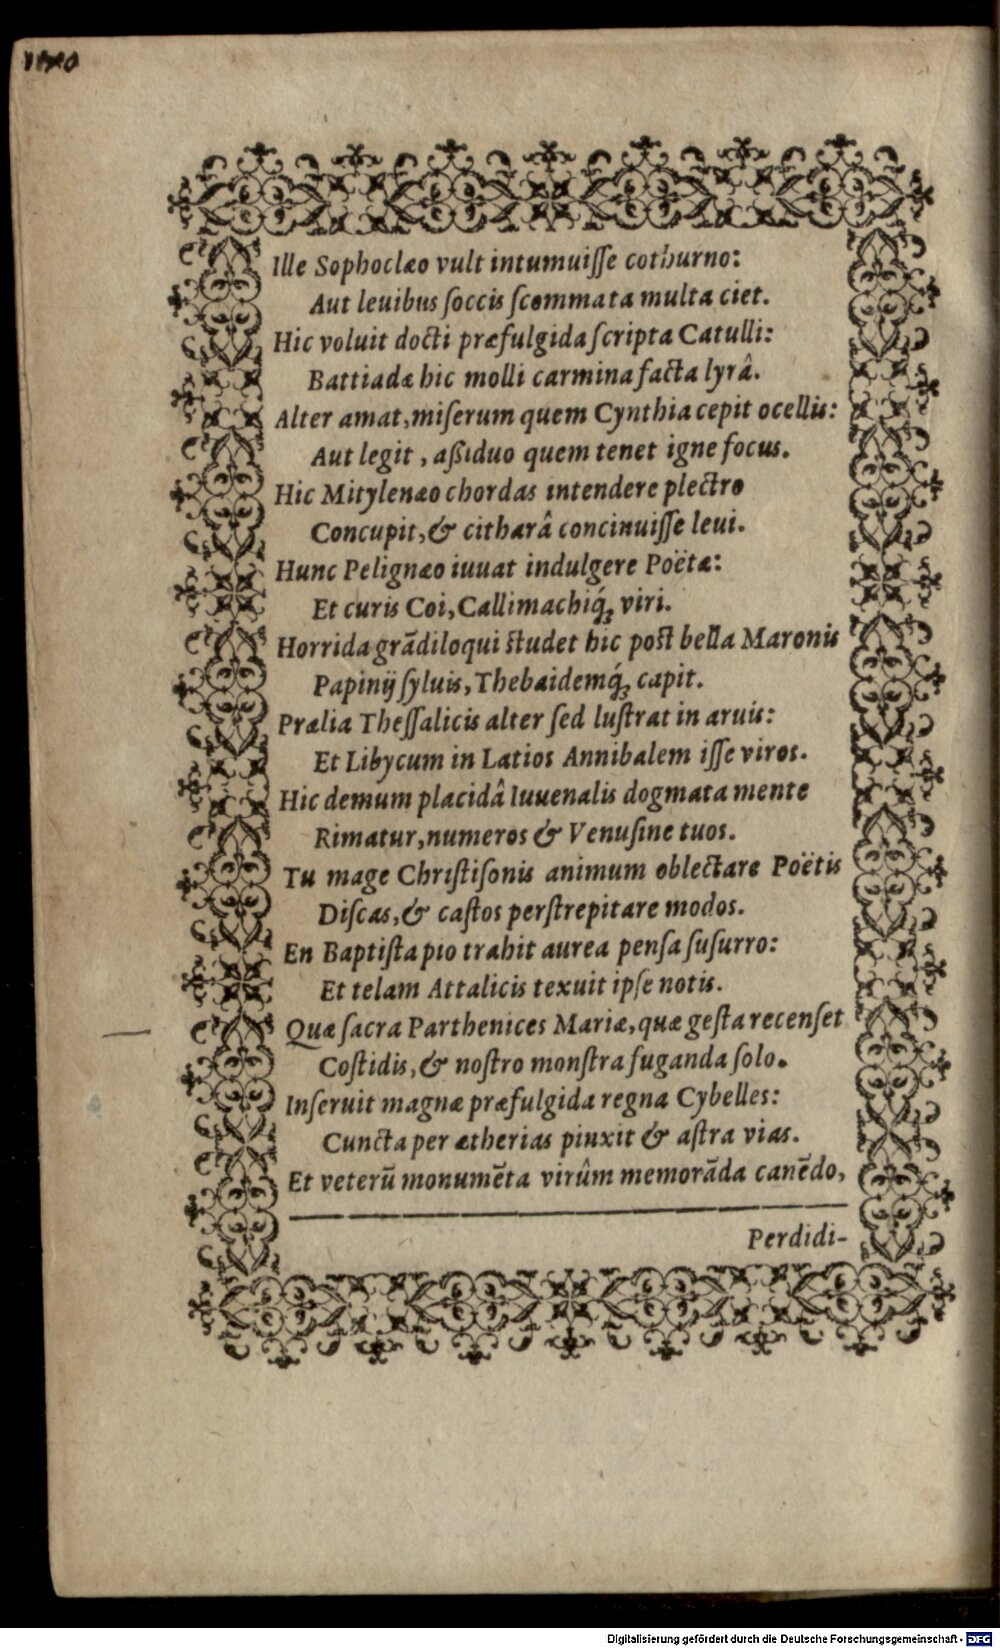 Ille Sophoclæo vult intumuiſſe cothurno:
Aut leuibus ſoccis ſcommata multa ciet.
Hic voluit docti præfulgida ſcripta Catulli:
Battiadæ hic molli carmina facta lyrâ.
Alter amat, miſerum quem Cynthia cepit ocellis:
Aut legit, aßiduo quem tenet igne focus.
Hic Mitylenæo chordas intendere plectro
Concupit, & citharâ concinuiſſe leui.
Hunc Pelignæo iuuat indulgere Poëtæ:
Et curis Coi, Callimachiq́ꝫ viri.
Horrida grādiloqui studet hic post bella Maronis
Papinij ſyluis, Thebaidemq́ꝫ capit.
Prælia Theſſalicis alter ſed luſtrat in aruis:
Et Libycum in Latios Annibalem iſſe viros.
Hic demum placidâ Iuuenalis dogmata mente
Rimatur, numeros & Venuſine tuos.
Tu mage Chriſtiſonis animum oblectare Poëtis
Diſcas, & caſtos perſtrepitare modos.
En Baptiſta pio trahit aurea penſa ſuſurro:
Et telam Attalicis texuit ipſe notis.
Quæ ſacra Parthenices Mariæ, quæ geſta recenſet
Coſtidis, & noſtro monſtra fuganda ſolo.
Inſeruit magnæ præfulgida regna Cybelles:
Cuncta per ætherias pinxit & aſtra vias.
Et veterū monumēta virûm memorāda canēdo,
Perdidi-
Digitalisierung gefördert durch die Deutsche Forschungsgemeinschaft - DFG